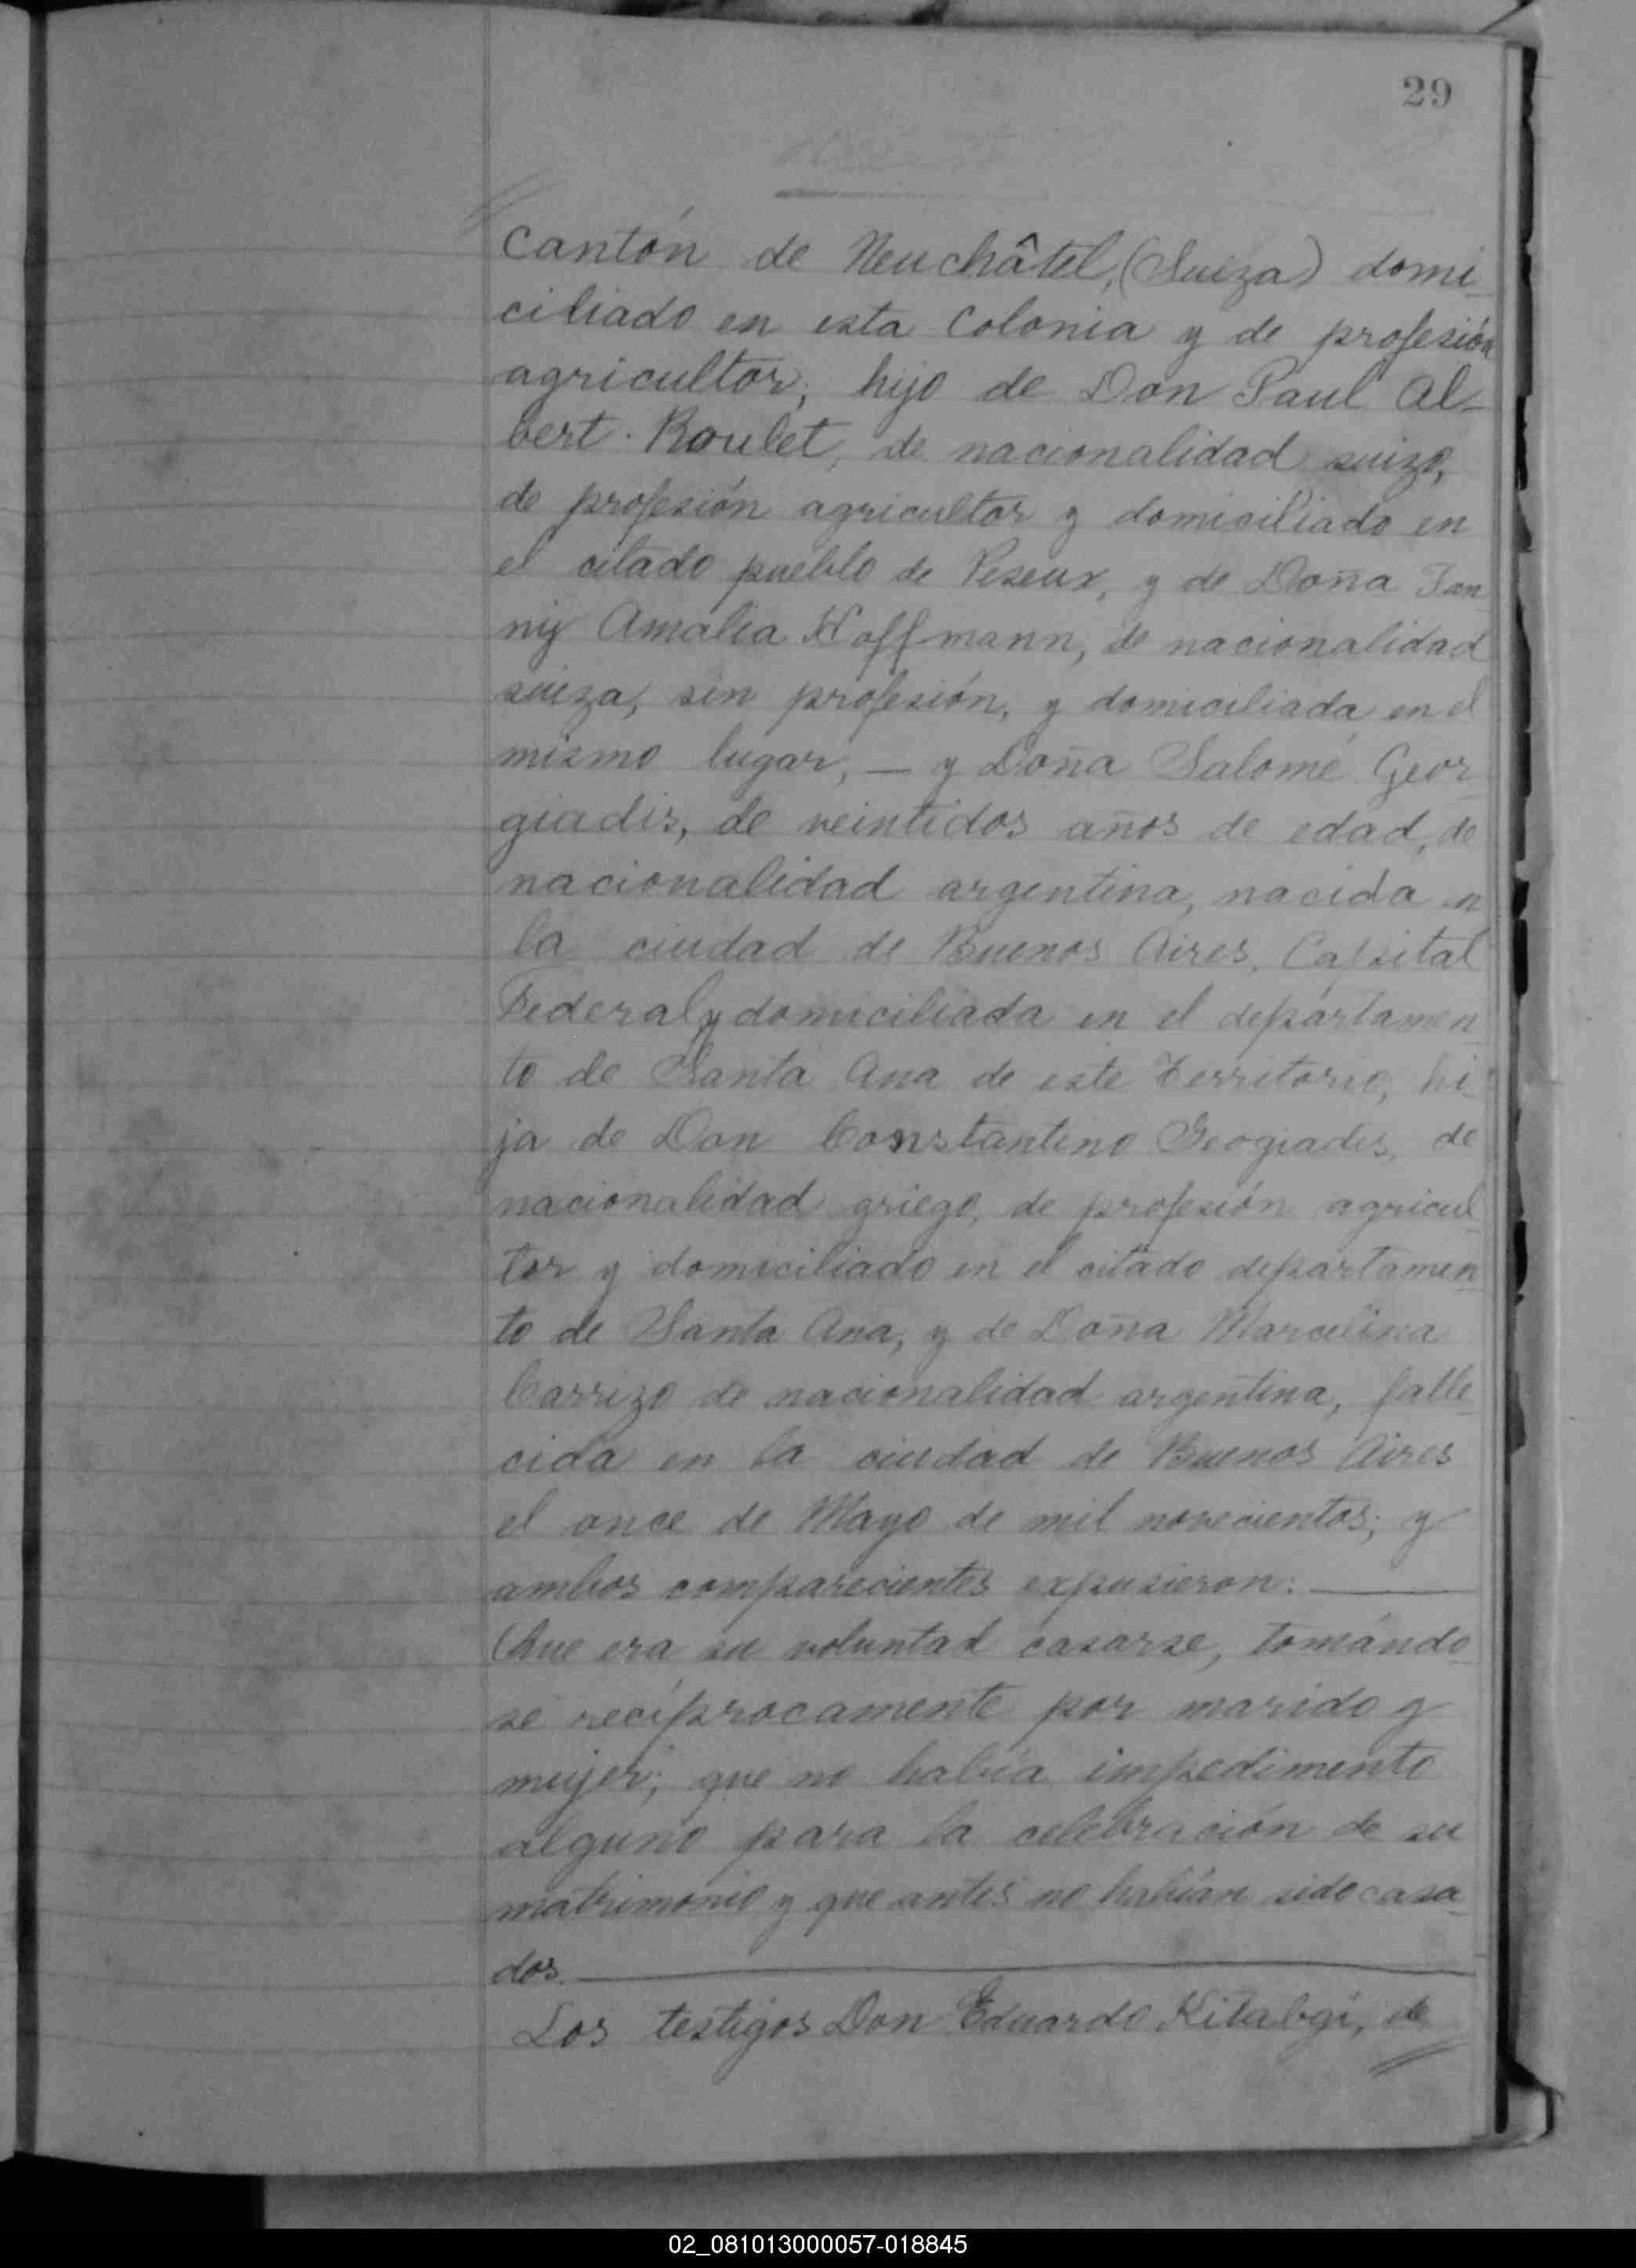 29
Cantón de Neuchâtel, (Suiza) domi-
ciliado en esta Colonia y de profesión
agricultor, hijo de Don Paul Al-
bert Roulet, de nacionalidad suizo,
de profesión agricultor y domiciliado en
el citado pueblo de Peseux, y de Doña Fan-
ny Amalia Hoffmann, de nacionalidad
suiza, sin profesión, y domiciliada en el
mismo lugar, — y Doña Salomé Geor-
giadis, de veintidos años de edad, de
nacionalidad argentina, nacida en
la ciudad de Buenos Aires, Capital
Federal y domiciliada en el departamen-
to de Santa Ana de este Territorio, hi-
ja de Don Constantino Geogiades, de
nacionalidad griego, de profesión agricul-
tor y domiciliado en el citado departamen-
to de Santa Ana, y de Doña Marcelina
Carrizo de nacionalidad argentina, falle-
cida en la ciudad de Buenos Aires
el once de Mayo de mil novecientos; y
ambos comparecientes expusieron:
Que era su voluntad casarse, tomándo-
se recíprocamente por marido y
mujer; que no había impedimento
alguno para la celebración de su
matrimonio y que antes no habían sido casa-
dos.
Los testigos Don Eduardo Kitabgi, de
02_081013000057-018845